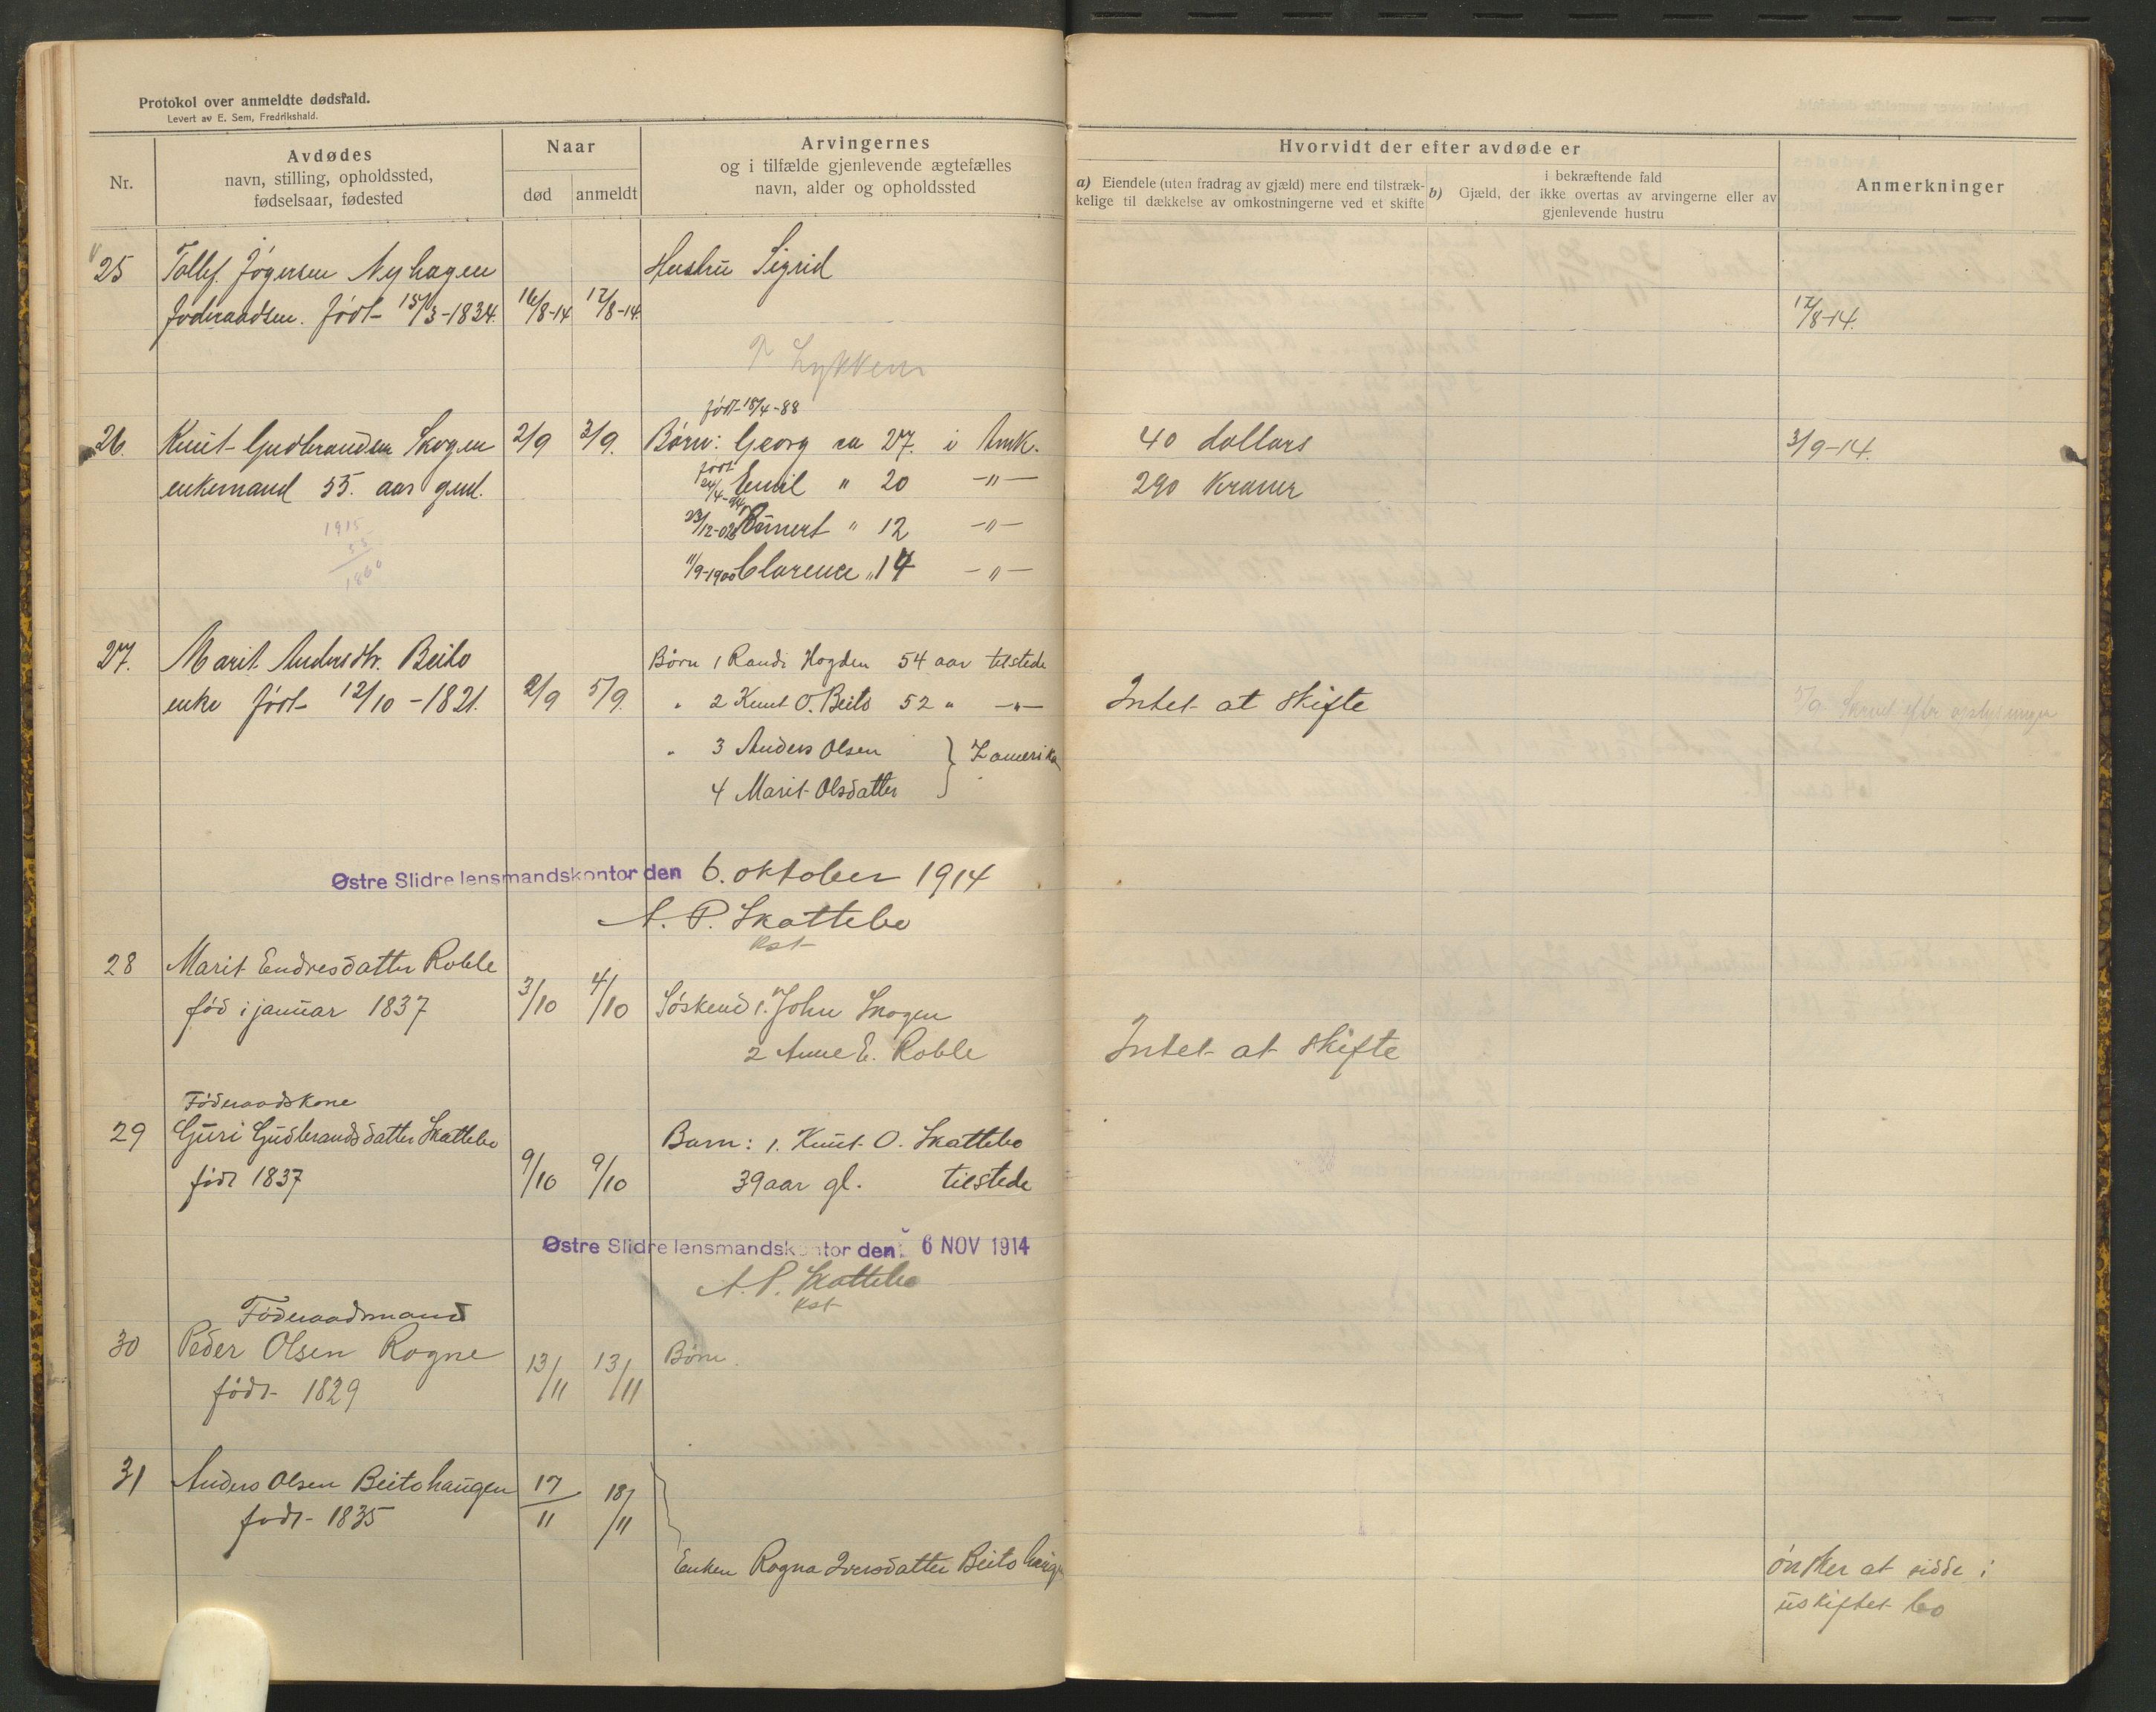 Protokol over anmeldte dødsfald.
Levert av E. Sem, Fredrikshald.
Nr.
Avdødes
navn, stilling, opholdssted,
fødselsaar, fødested
Naar
død
anmeldt
Arvingernes
og i tilfælde gjenlevende ægtefælles
navn, alder og opholdssted
Hvorvidt der efter avdøde er
a) Eiendele (uten fradrag av gjæld) mere end tilstræk-
kelige til dækkelse av omkostningerne ved et skifte
i bekræftende fald
b) Gjæld, der ikke overtas av arvingerne eller av
gjenlevende hustru
Anmerkninger
25 Tollef Jögersen Nyhagen Hustru Sigrid
Foderaadsm. Født 15/3-1834. 16/8-14 17/8-14. 17/8-14.
Lykken
født 18/4-88
26. Knut Gudbrandsen Skogen 2/9 3/9. Börn: Georg ca 27. i Amk. 40 dollars 3/9-14.
enkemand 55. aar gml. født 24/4-94 Emil " 20 -"- 290 Kroner
1915
55
1860
23/12-02 Rünert " 12 -"-
11/9-1900 Clarence " 14 -"-
27. Marit Andersdtr. Beito Börn 1 Randi Hogden 54 aar tilstede
enke født 12/10-1821. 2/9 5/9. " 2 Knut O. Beito 52 " -"- Intet at skifte 5/9 Skrevet efter oplysninger
" 3 Anders Olsen } I amerika
4 Marit Olsdatter
Østre Slidre lensmandskontor den 6. oktober 1914
A. P. Skattebo
kst
28 Marit Endresdatter Roble
fød i januar 1837 3/10 4/10 Söskend 1. John Skogen
2 Anne E. Roble Intet at skifte
Föderaadskone
29 Guri Gudbrandsdatter Skattebo Barn: 1. Knut O. Skattebo
født 1837 9/10 9/10 39 aar gl. tilstede
Østre Slidre lensmandskontor den 6 NOV 1914
A. P. Skattebo
kst
Föderaadsmand
30 Peder Olsen Rogne 13/11 13/11 Börn.
født 1829
31 Anders Olsen Beitohaugen 17/11 18/11
født 1835
Enken Rogna Iversdatter Beitohaugen ønsker at sidde i
uskiftet bo